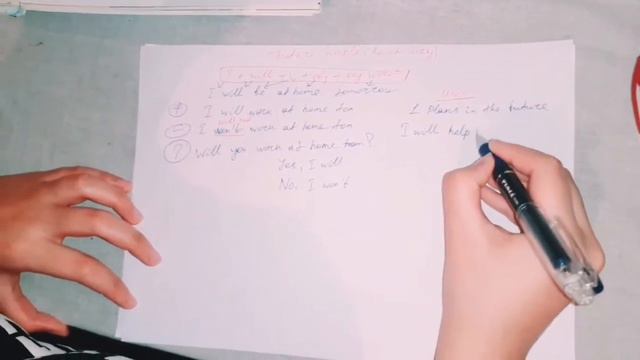 I will be at home tomorrow
+ I will work at home tom
will not
- I won't work at home tom
? Will you work at home tom?
Yes, I will
No, I won't
Use
1 Plans in the future
I will help